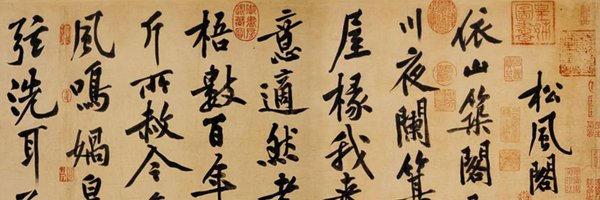 松風閣
依山築閣
川夜闌箕
屋椽我來
意適然老
梧數百年
斤所赦今
風鳴媧皇
弦洗耳